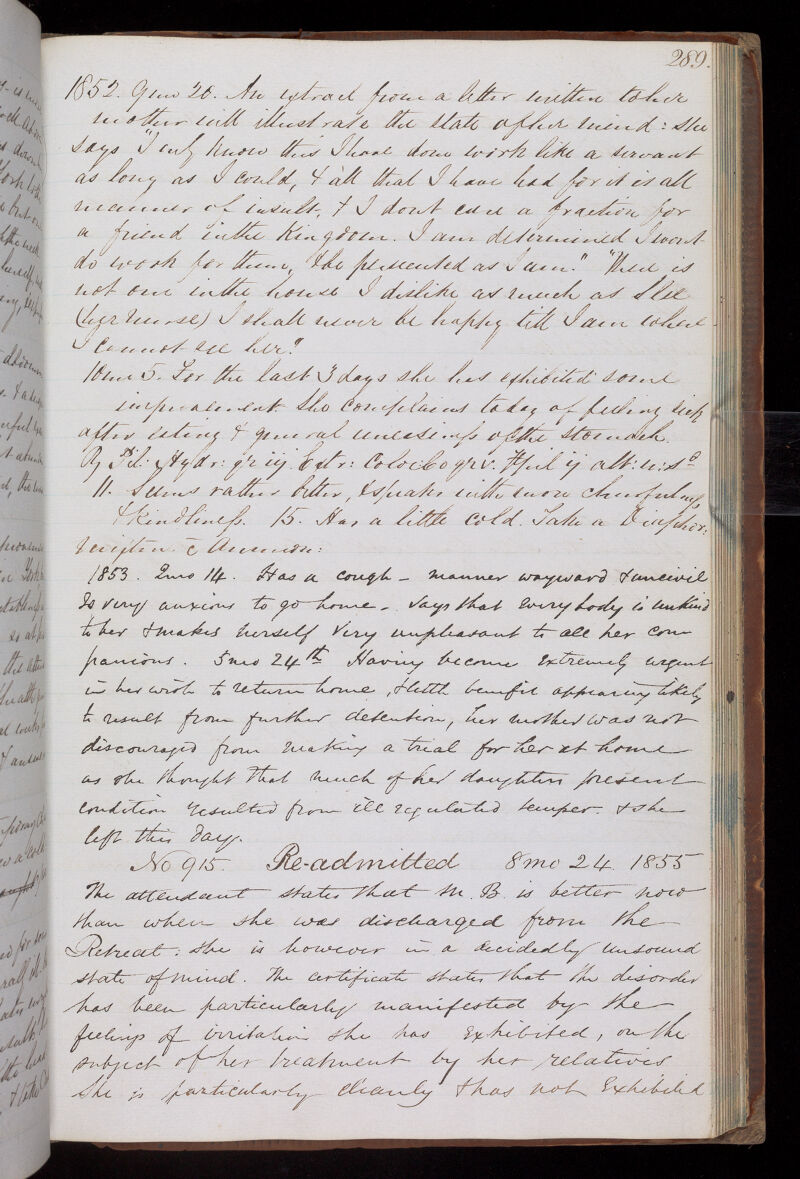 289.
1852. 9mo 20. An extract from a letter written to her
mother will illustrate the state of her mind: she
says "I only know this I have done work like a servant
as long as I could, & all that I have had for it is all
manner of insult, & I dont care a fraction for
a friend in the Kingdom. I am determined I wont
do work for them, & be persecuted as I am." "There is
not one in the house I dislike as much as
(her nurse) I shall never be happy till I am where
I cannot see her."
10mo 5. For the last 3 days she has exhibited some
improvement. She complains today of feeling sick
after eating & general uneasiness of the stomach.
Pil: Hydr: gr iij Extr: Coloc: Co gr v. Ft pil ij alt: n: s
11. Seems rather better, & speaks with more chearfulness
& kindliness. 15. Has a little cold. Take a Diaphor:
c̄ Ammon:
1853. 2mo 14. Has a cough – manner wayward & uncivil
Is very anxious to go home – says that every body is unkind
to her & makes herself very unpleasant to all her com
panions. 5mo 24th Having become extremely urgent
in her wish to return home, & little benefit appearing likely
to result from further detention, her mother was not
discouraged from making a trial for her at home
as she thought that much of her daughters present
condition resulted from ill regulated temper. & she
left this day.
No 915. Re-admitted 8mo 24. 1855
The attendant states that M. B. is better now
than when she was discharged from the
Retreat: she is however in a decidedly unsound
state of mind. The certificate states that the disorder
has been particularly manifested by the
feelings of irritation she has exhibited, on the
subject of her treatment by her relatives
She is particularly cleanly & has not exhibited